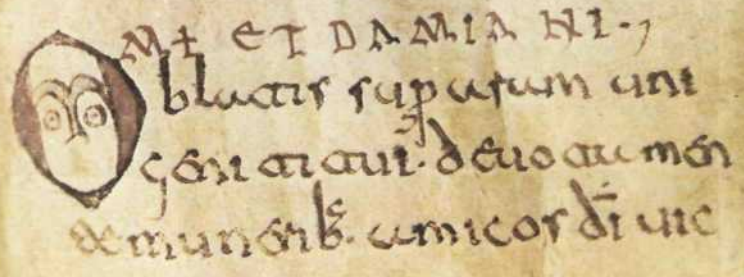 M+ ET DAMIANI.,
Oblatis sup aram uni
geniti tui. deuota men
te munerib. amicos di uic